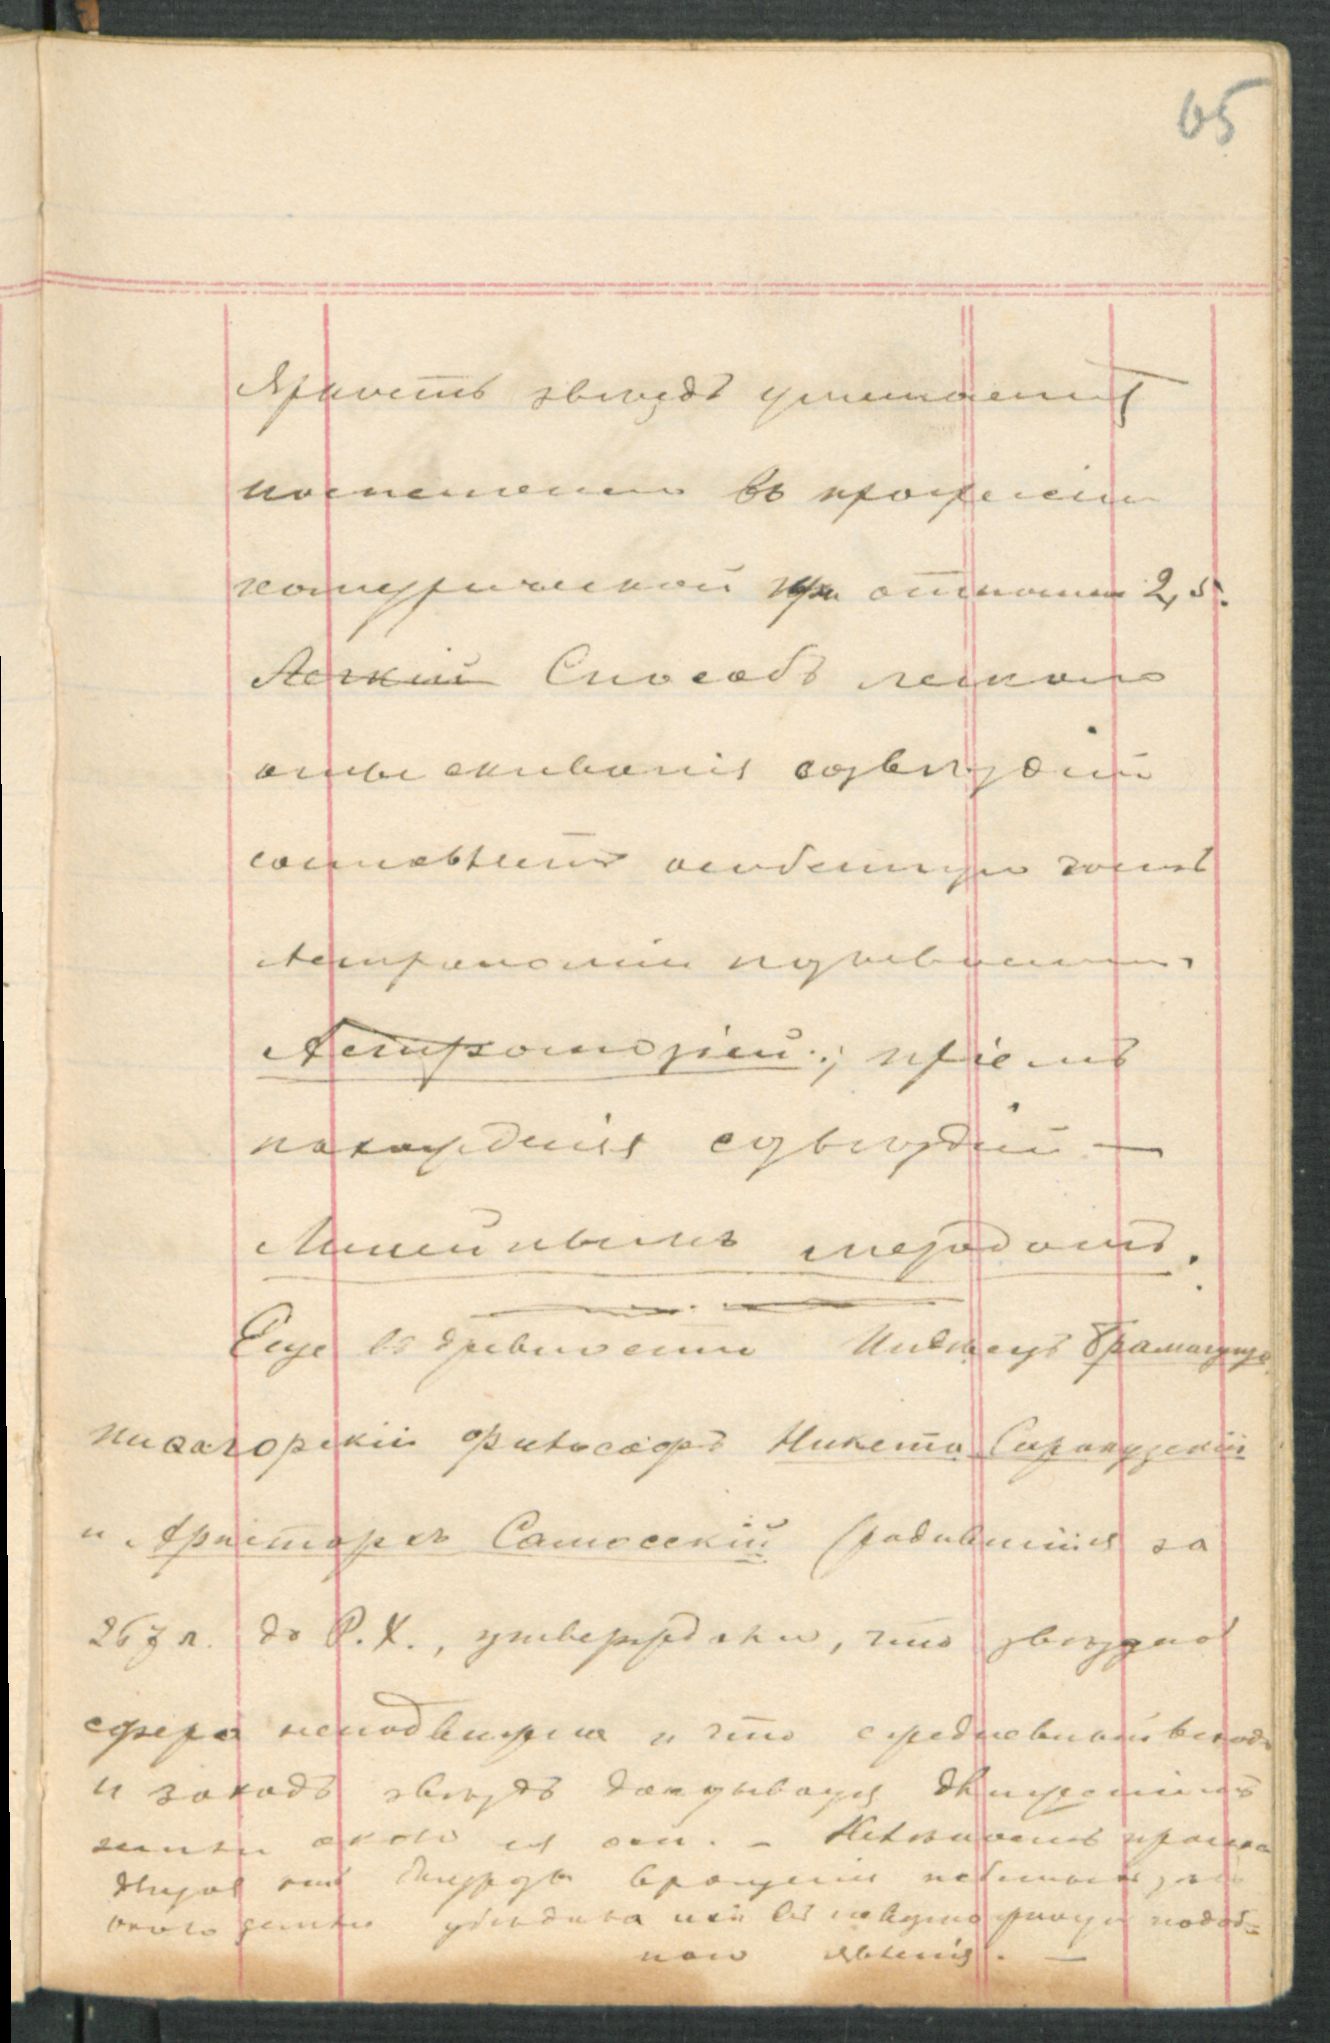 65
Яркость звѣздъ уменьшается
постепенно въ прогрессіи
геометрической при отношен 2,5.
Легкій Способъ легкаго
отыскиванія созвѣздій
составляетъ особенную часть
Астрономіи называемую
Астрогнозіей; пріемъ
нахожденія созвѣздій —
Линейнымъ методомъ.
Еще въ древности Индѣецъ Брамагупта
пиѳагорскій философъ Никета Сиракузскій
и Аристархъ Самосскій (родившійся за
267 л. до Р.Х., утверждали, что звѣздная
сфера неподвижна и что средневный восход
и заходъ звѣздъ движеніемъ
земли около ея оси. —
вращенія
около земли подоб-
наго явленія. —